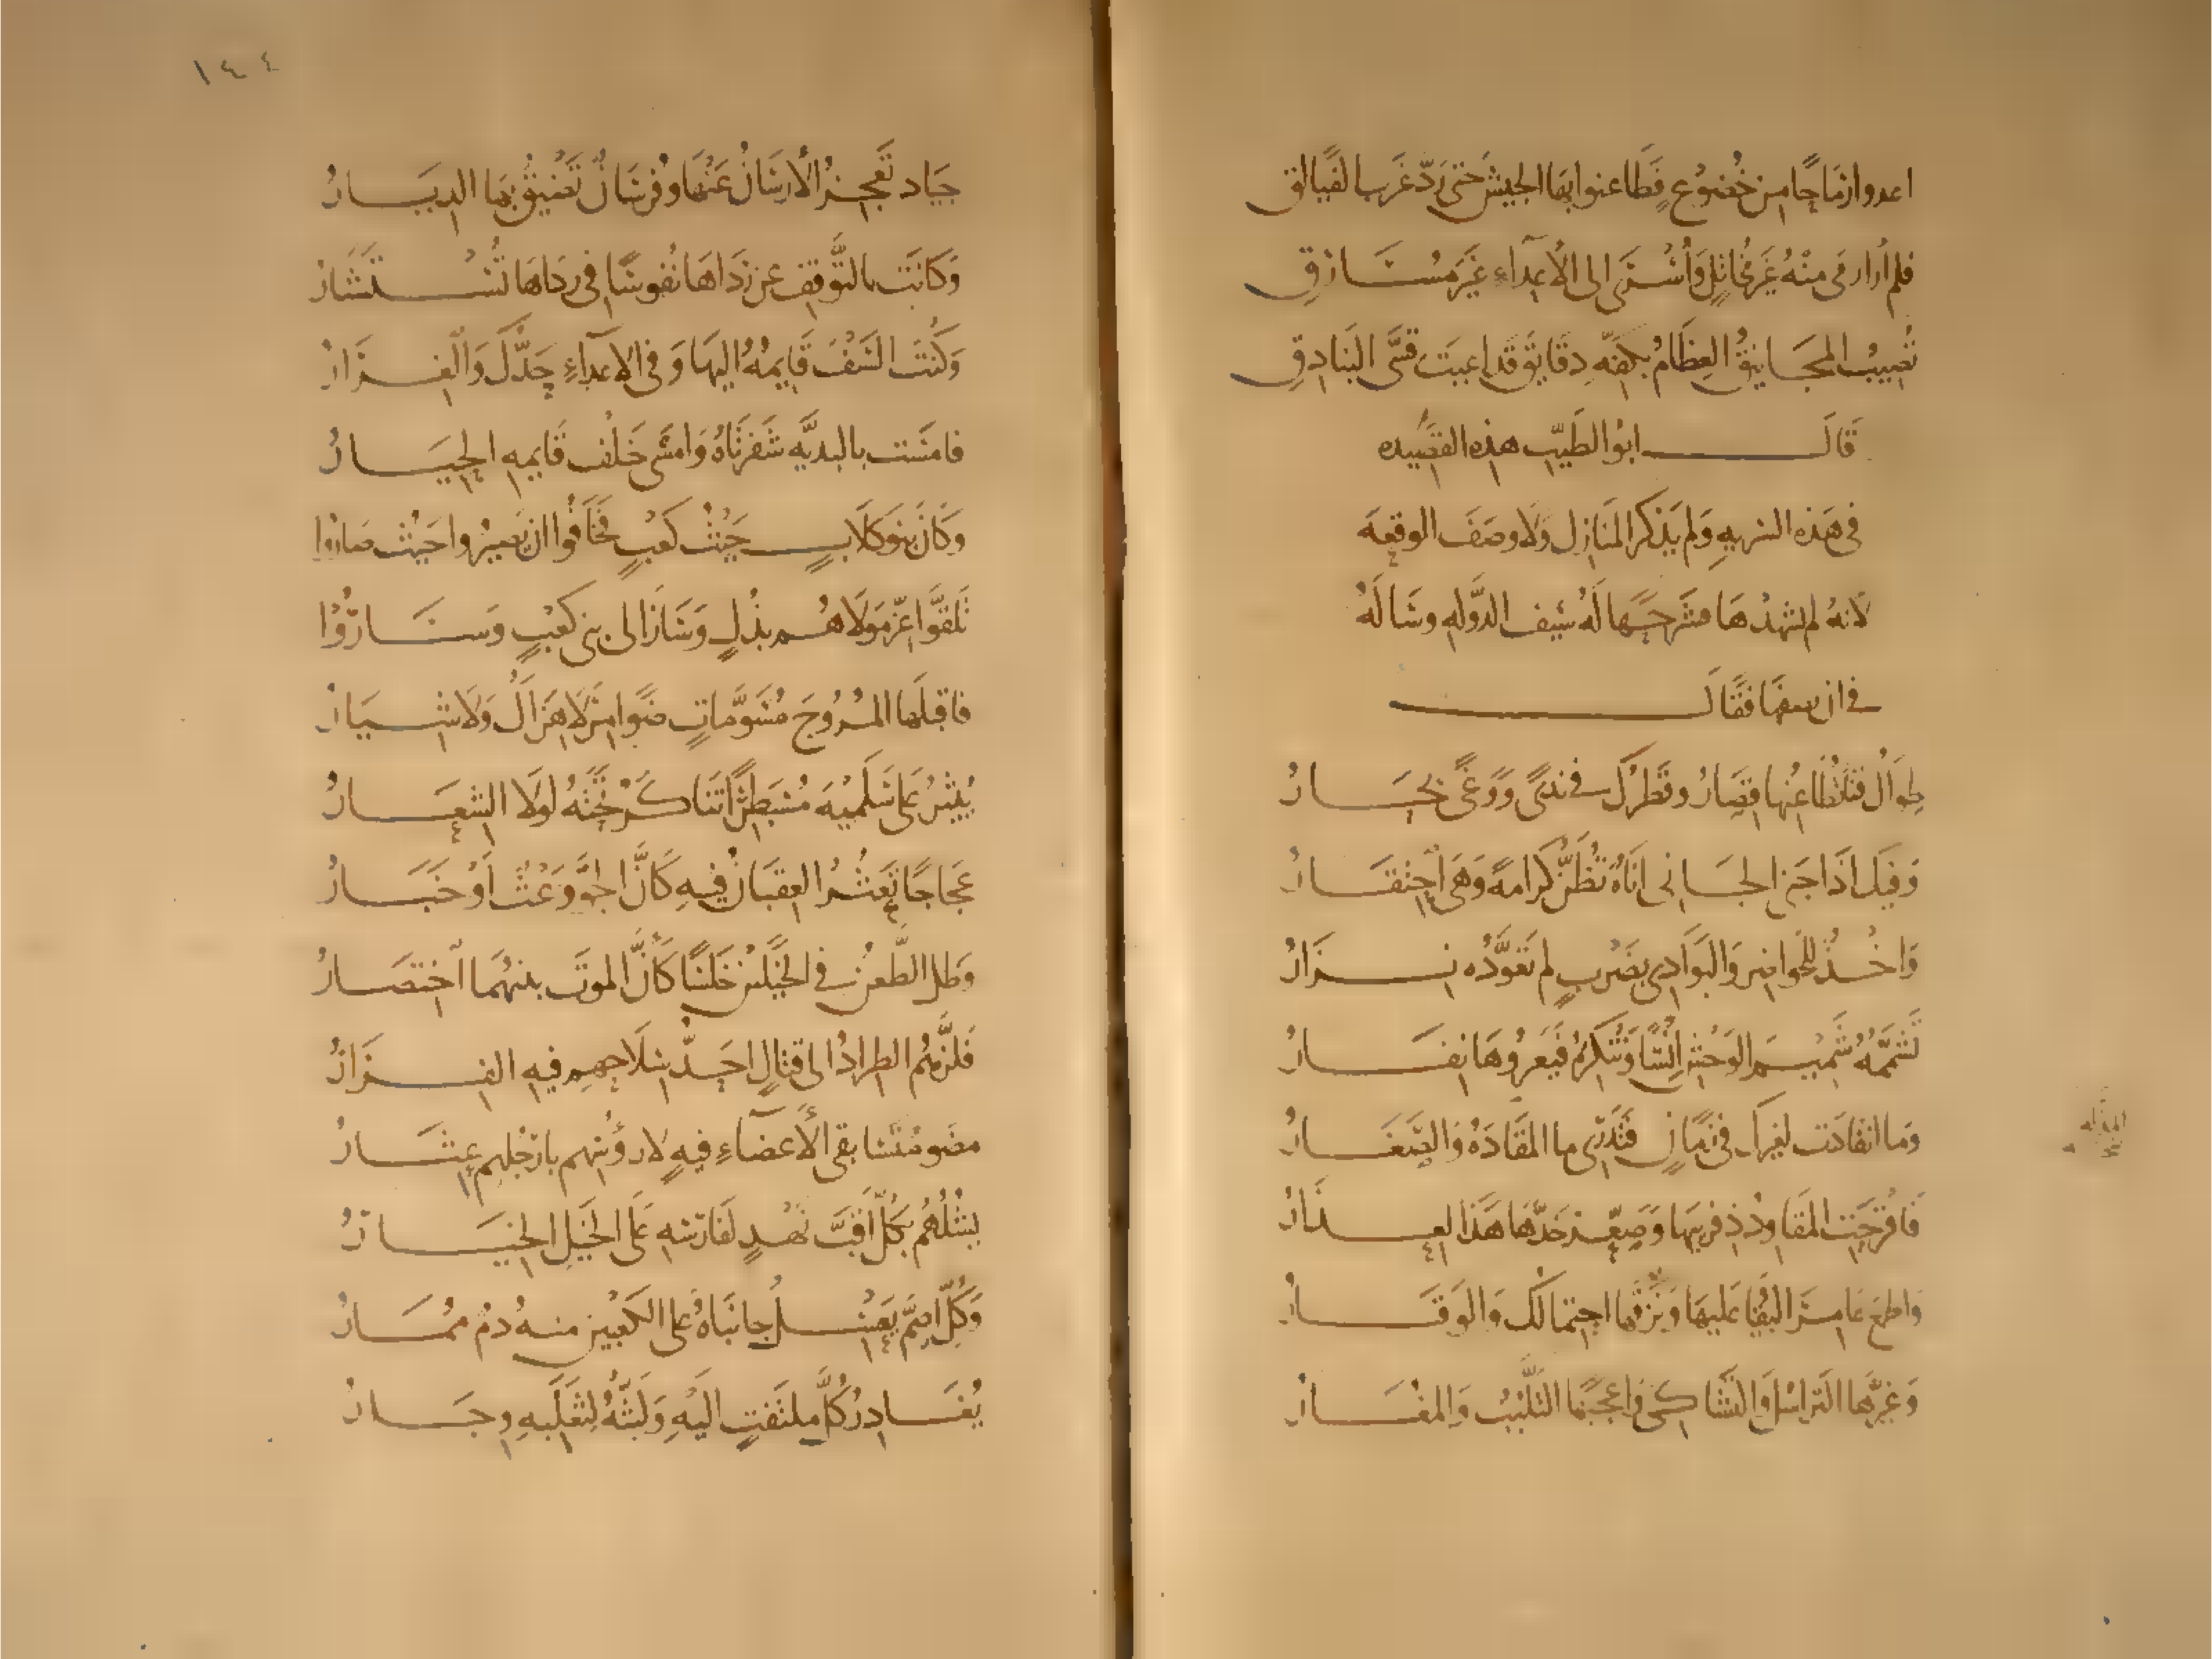 اعدوا رماحا من خضوع فطاعنوا بها الجيش حتى رد غرب الفيالق
فلم أر ارمى منه غير مخاتل وأسرى الى الأعداء غير مسارق
تصيب المجانيق العظام بكفه دقايق قد اعيت قسي البنادق
قال ابو الطيب هذه القصيده
في هذه السريه ولم يذكر المنازل ولا وصف الوقعه
لانه لم يشهدها فشرحها له سيف الدوله وساله
في ان يصفها فقال
طوال قنا تطاعنها قصار وقطرك في ندى ووغى بحار
وفيك اذا جنى الجاني اناة تظن كرامة وهي احتقار
واخذ للحواضر والبوادي بضرب لم تعوده نزار
تشممه شميم الوحش انسا وتنكره فيعروها نفار
وما انقادت لغيرك في زمان فتدري ما المقادة والصغار
فاقرحت المقاود ذفرييها وصعر خدها هذا العذار
واطمع عامر البقيا عليها ونزقها احتمالك والوقار
وغيرها التراسل والتشاكي واعجبها التلبب والمغار
١٤٤
جياد تعجز الارسان عنها وفرسان تضيق بها الديار
وكانت بالتوقف عن رداها نفوسا في رداها تستشار
وكنت السيف قايمه اليها وفي الاعداء حدك والغرار
فامست بالبديه شفرتاه وامسى خلف قايمه الحيار
وكان بنو كلاب حيث كعب فخافوا ان يصيروا حيث صاروا
تلقوا عز مولاهم بذل وسار الى بني كعب وساروا
فاقبلها المروج مسومات ضوامر لا هزال ولا شيار
يثير على سلمية مسبطرا تناكر تحته لولا الشعار
عجاجا تعثر العقبان فيه كأن الجو وعث أو خبار
وظل الطعن في الخيلين خلسا كأن الموت بينهما اختصار
فلزهم الطراد الى قتال احد سلاحهم فيه الفرار
مضوا متسابقي الأعضاء فيه لارؤسهم بارجلهم عثار
يشلهم بكل أقب نهد لفارسه على الخيل الخيار
وكل اصم يعسل جانباه على الكعبين منه دم ممار
يغادر كل ملتفت اليه ولبته لثعلبه وجار